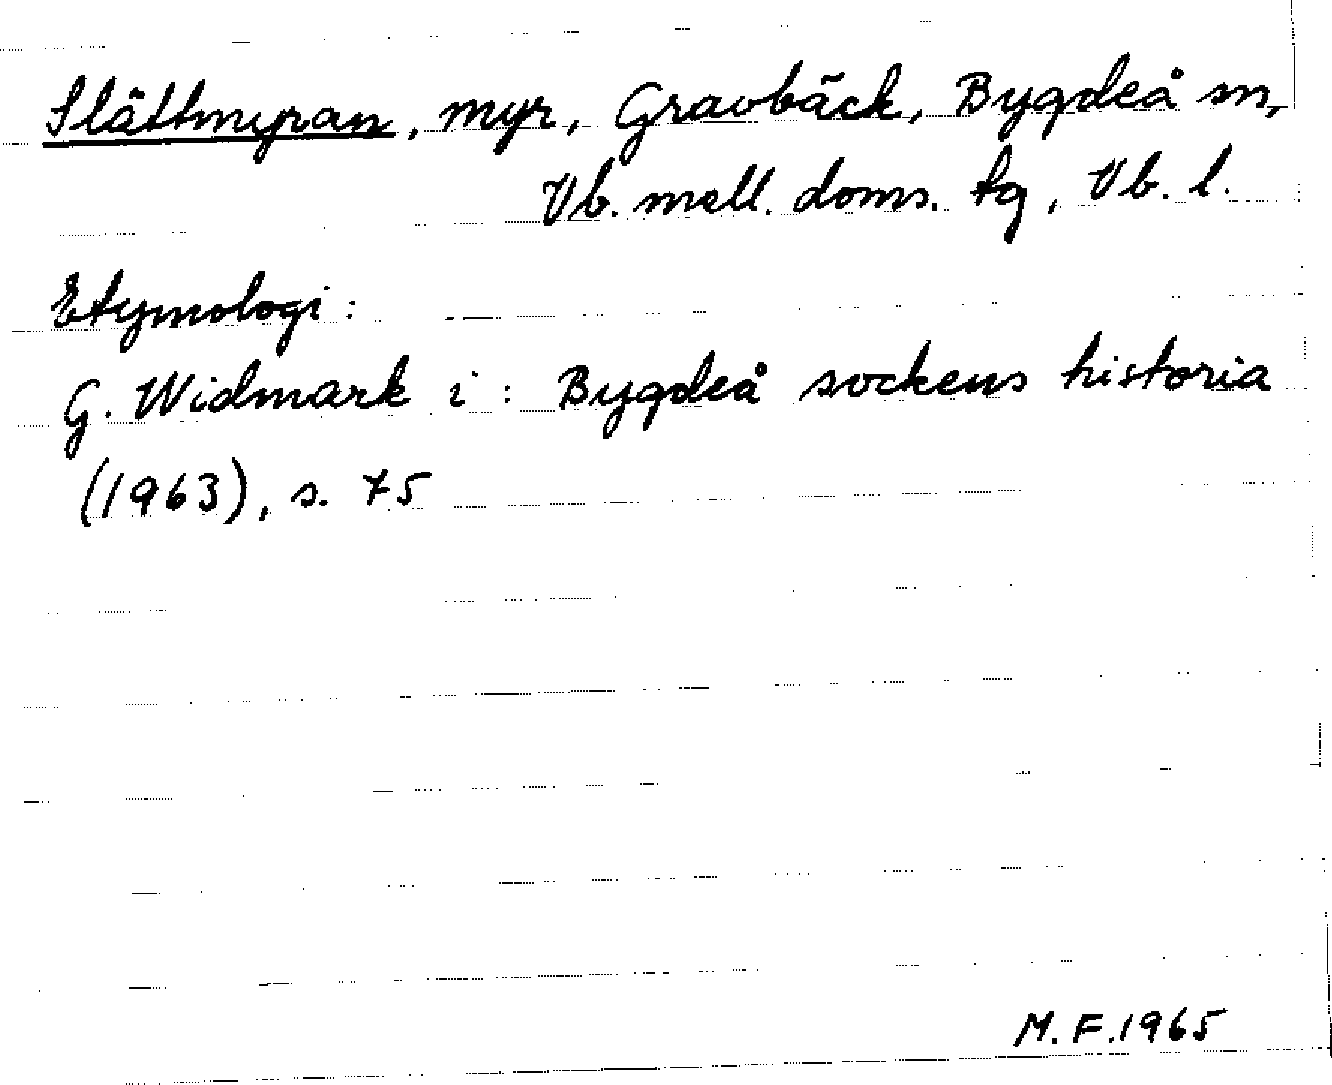 Slättmyran, myr, Gravbäck, Bygdeå sn,
Vb. mell. doms. tg, Vb. l.
Etymologi:
G. Widmark i: Bygdeå sockens historia
(1963), s. 75
M.F. 1965